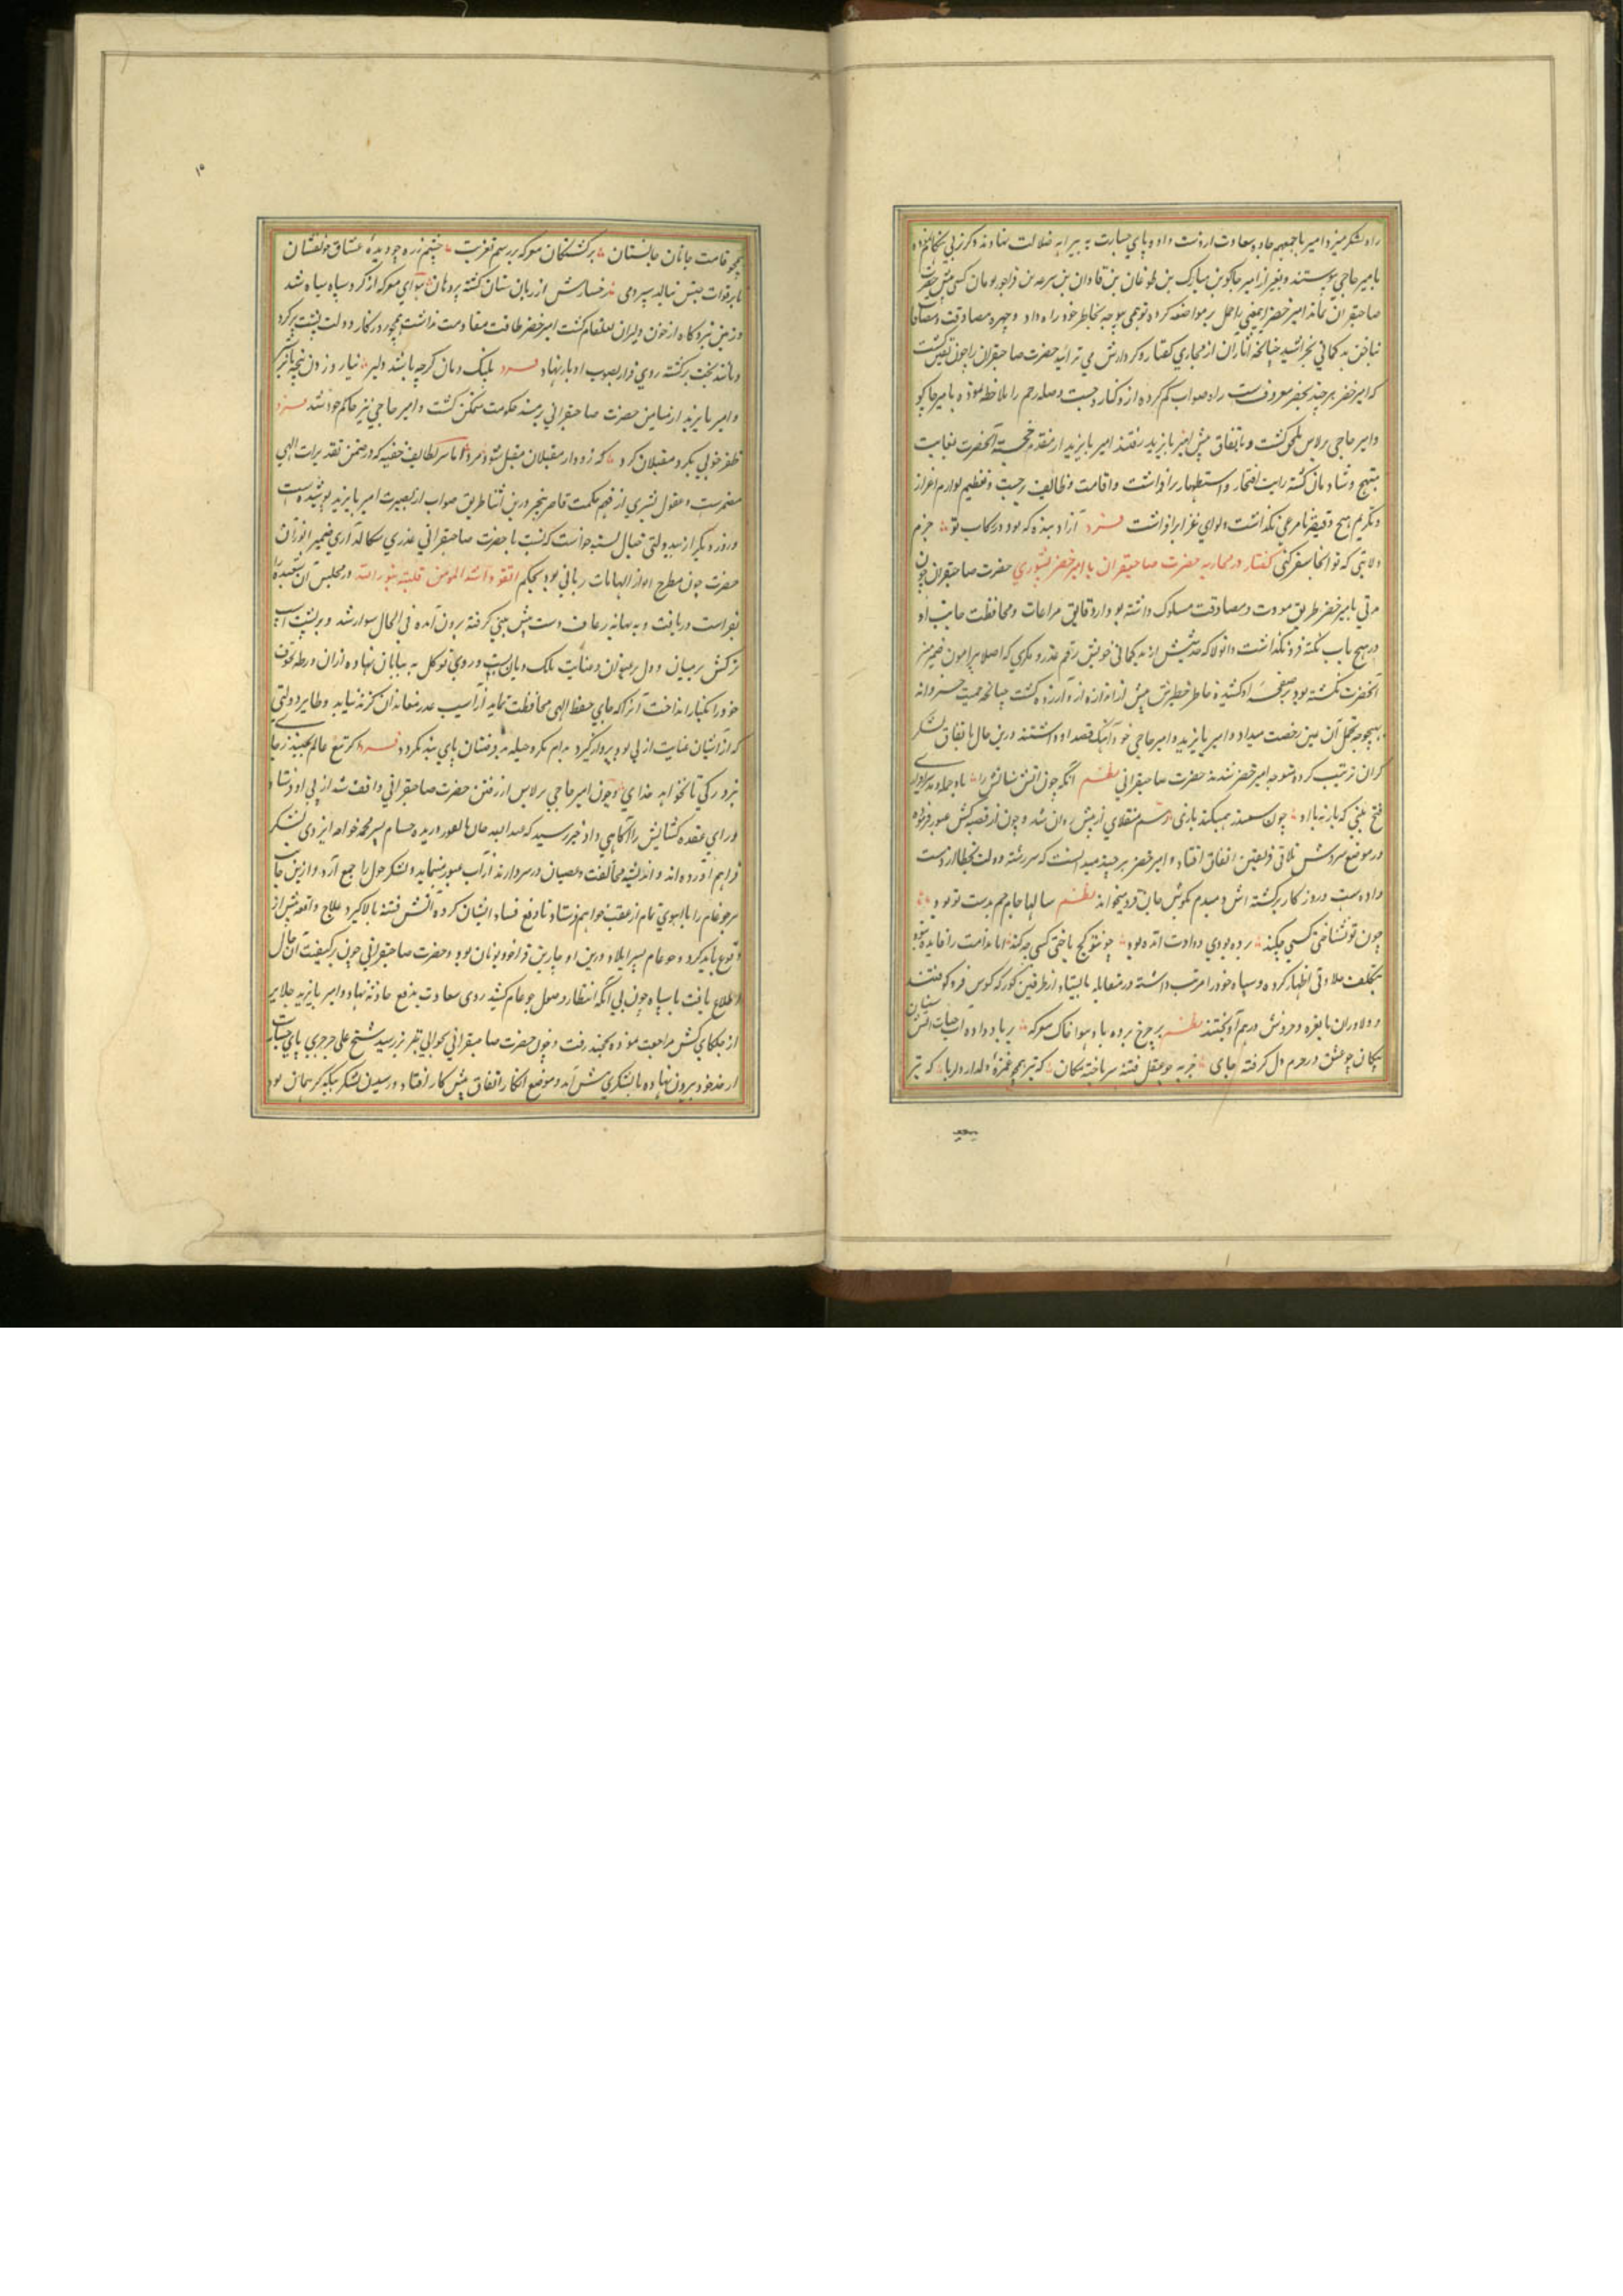 راه لشکر میز و امیر باجمعهم جاده سعادت از دست داده و پای جسارت به بیراهه ضلالت نهادند و کرزنی
بامیر حاجی پیوستند و بغیر از امیر جاکو بن مبارک بن طوغان بن قادان بن کسی پیش حضرت
صاحبقران نماند امیر خضر این معنی را حمل بر مواضعه کرده توهمی بخاطر خود راه داد و چهره مصادقت و مصافا
بناخن بد کمانی بخراشید چنانچه اثار ان از مجاری کفتار و کردارش می تراوید حضرت صاحبقران را چون یقین کشت
که امیر خضر هر چند بخضر معروفست راه صواب کم کرده ازو کنار جست و صله رحم را ملاحظه نموده با میر جاکو
و امیر حاجی برلاس ملحق کشت و باتفاق پیش امیر بایزید رفتند امیر بایزید از مقدم خجسته آنحضرت بغایت
مبتهج و شادمان کشته رایت افتخار و استظهار برافراشت و اقامت وظایف ترحیب و تعظیم و لوازم اعزاز
و تکریم هیچ دقیقه نامرعی نکذاشت و لوای برافراشت فرد آزاد بنده که بود در رکاب تو خرم
ولایتی که تو انجا سفر کنی کفتار در محاربه حضرت صاحبقران با امیر خضر یسوری حضرت صاحبقران چون
مدتی با میر خضر طریق مودت و مصادقت مسلوک داشته بود و از دقایق مراعات و محافظت جانب او
در هیچ باب نکته فرو نکذاشت و او از بد کمانی خویش رقم غدر و مکری که اصلا پیرامون ضمیر منیر
آنحضرت نکشته بود بر صفحه او کشیده خاطر خطیرش بیش از اندازه ازو آزرده کشت چنانچه حمیت خسروانه
بهیچوجه تحمل آن نمیداد و امیر بایزید و امیر حاجی خود آهنک قصد او داشتند درین حال باتفاق لشکر
کران ترتیب کرده متوجه امیر خضر شدند حضرت صاحبقرانی نظم انکه چون آتش سنانش را باد حمله دهد
فتح بلخی که باز به با او چون سمند همیکند بازی برسم منقلای از پیش روان شد و چون از قصبه کش عبور فرموده
در موضع سروش تلاقی فریقین اتفاق افتاد و امیر خضر هر چند میدانست که سررشته دولت بخطا از دست
داده است و روزکار برکشته اش دمبدم بکوش جان فرو میخواند نظم سالها جام جم بدست تو بود
چون تو نشناختی کسی چکند برده بودی و داوت آمده بود چو تو کج باختی کسی چه کند اما ندامت را فایده نبود
بتکلف جلادتی اظهار کرده و سپاه خود را مرتب داشته در مقابله بایستاد از طرفین کورکه و کوس فرو کوفتند
و دلاوران با نعره و خروش در هم آویختند نظم بر چرخ برده باد هوا خاک معرکه بر باد داده آب حیات آتش سنان
پیکان چو عشق در حرم دل کرفته جای خربه چو عقل فتنه سر باخته کان که تیر همچو غمزه دلدار دلربا که تیر
همچو
۱۰
همچو قامت جانان جانستان بر کشتکان معرکه بر رسم تعزیت چشم زره چو دیده عشاق خونفشان
رخسارش از زبان سنان کشته پر دهان هوای معرکه از کرد سپاه سیاه شد
و زمین نبردکاه از خون دلیران لعلفام کشت امیر خضر طاقت مقاومت نداشت همچو روزکار دولت پشت بر کرد
و مانند بخت برکشته روی فرار بصوب ادبار نهاد فرد پلنک دمان کرچه باشد دلیر نیارد زدن پنجه با نره شیر
و امیر بایزید از میامن حضرت صاحبقرانی بر مسند حکومت متمکن کشت و امیر حاجی نیز حاکم خود شد فرد
ظفر خوئی بکرد مقبلان کرد که زود از مقبلان مقبل شود مرد اما سر لطایف خفیه که در ضمن تقدیرات الهی
مضمرست و عقول بشری از فهم حکمت قاصر درین اثنا طریق صواب از بصیرت امیر بایزید پوشیده است
و روز دیکر از بیدولتی خیال بسته خواست که نسبت با حضرت صاحبقرانی غدری سکالد آری ضمیر انور آن
حضرت چون مطرح انوار الهامات ربانی بود بحکم اتقوا فراسة المومن فانه ینظر بنور الله در مجلس آن قصد را
بفراست دریافت و به بهانه رعاف دست پیش بینی کرفته برون آمده فی الحال سوار شد و بر پشت اسب
ترکش بر میان و دل بر عون و عنایت ملک دیان بست و روی توکل به بیابان نهاده از ان ورطه مخوف
خود را بکنار انداخت آنرا که حامی حفظ الهی محافظت نماید از آسیب غدر معاندان کزند نیابد و طایر دولتی
که از آشیان عنایت ازلی بود پرواز کیرد بدام مکر و حیله بد فعلان پای بند نکردد فرد اکر تیغ عالم بجنبد ز جای
نبرد رکی تا نخواهد خدای و چون امیر حاجی برلاس از رفتن حضرت صاحبقرانی واقف شد از پی او فرستاد
و رای عقده کشایش را آکاهی داد خبر رسید که پسر محمد خواجه ایزدی لشکر
فراهم آورده اند و اندیشه مخالفت و عصیان در سر دارند از آب عبور مینماید و لشکر حول را جمع آرد و ازین جانب
جوغام را با انبوهی تمام از عقب خواهم فرستاد تا دفع فساد ایشان کرده آتش فتنه بالا کیرد علاج واقعه پیش از
وقوع باید کرد و جوغام پسر ایلاد درین او چارین قراخود یونان بود و حضرت صاحبقرانی چون بر کیفیت آن حال
اطلاع یافت با سپاه چون بی آنکه انتظار وصول جوغام کشید روی سعادت بدفع حادثه نهاد و امیر بایزید جلایر
از جلکای کش مراجعت نموده بخجند رفت و چون حضرت صاحبقرانی بحوالی رسید شیخ علی جرجری پای جسارت
از حد خود بیرون نهاده با لشکری پیش آمد و موضع اتفاق پیش کار افتاد و رسیدن لشکر بیکدیکر همان بود